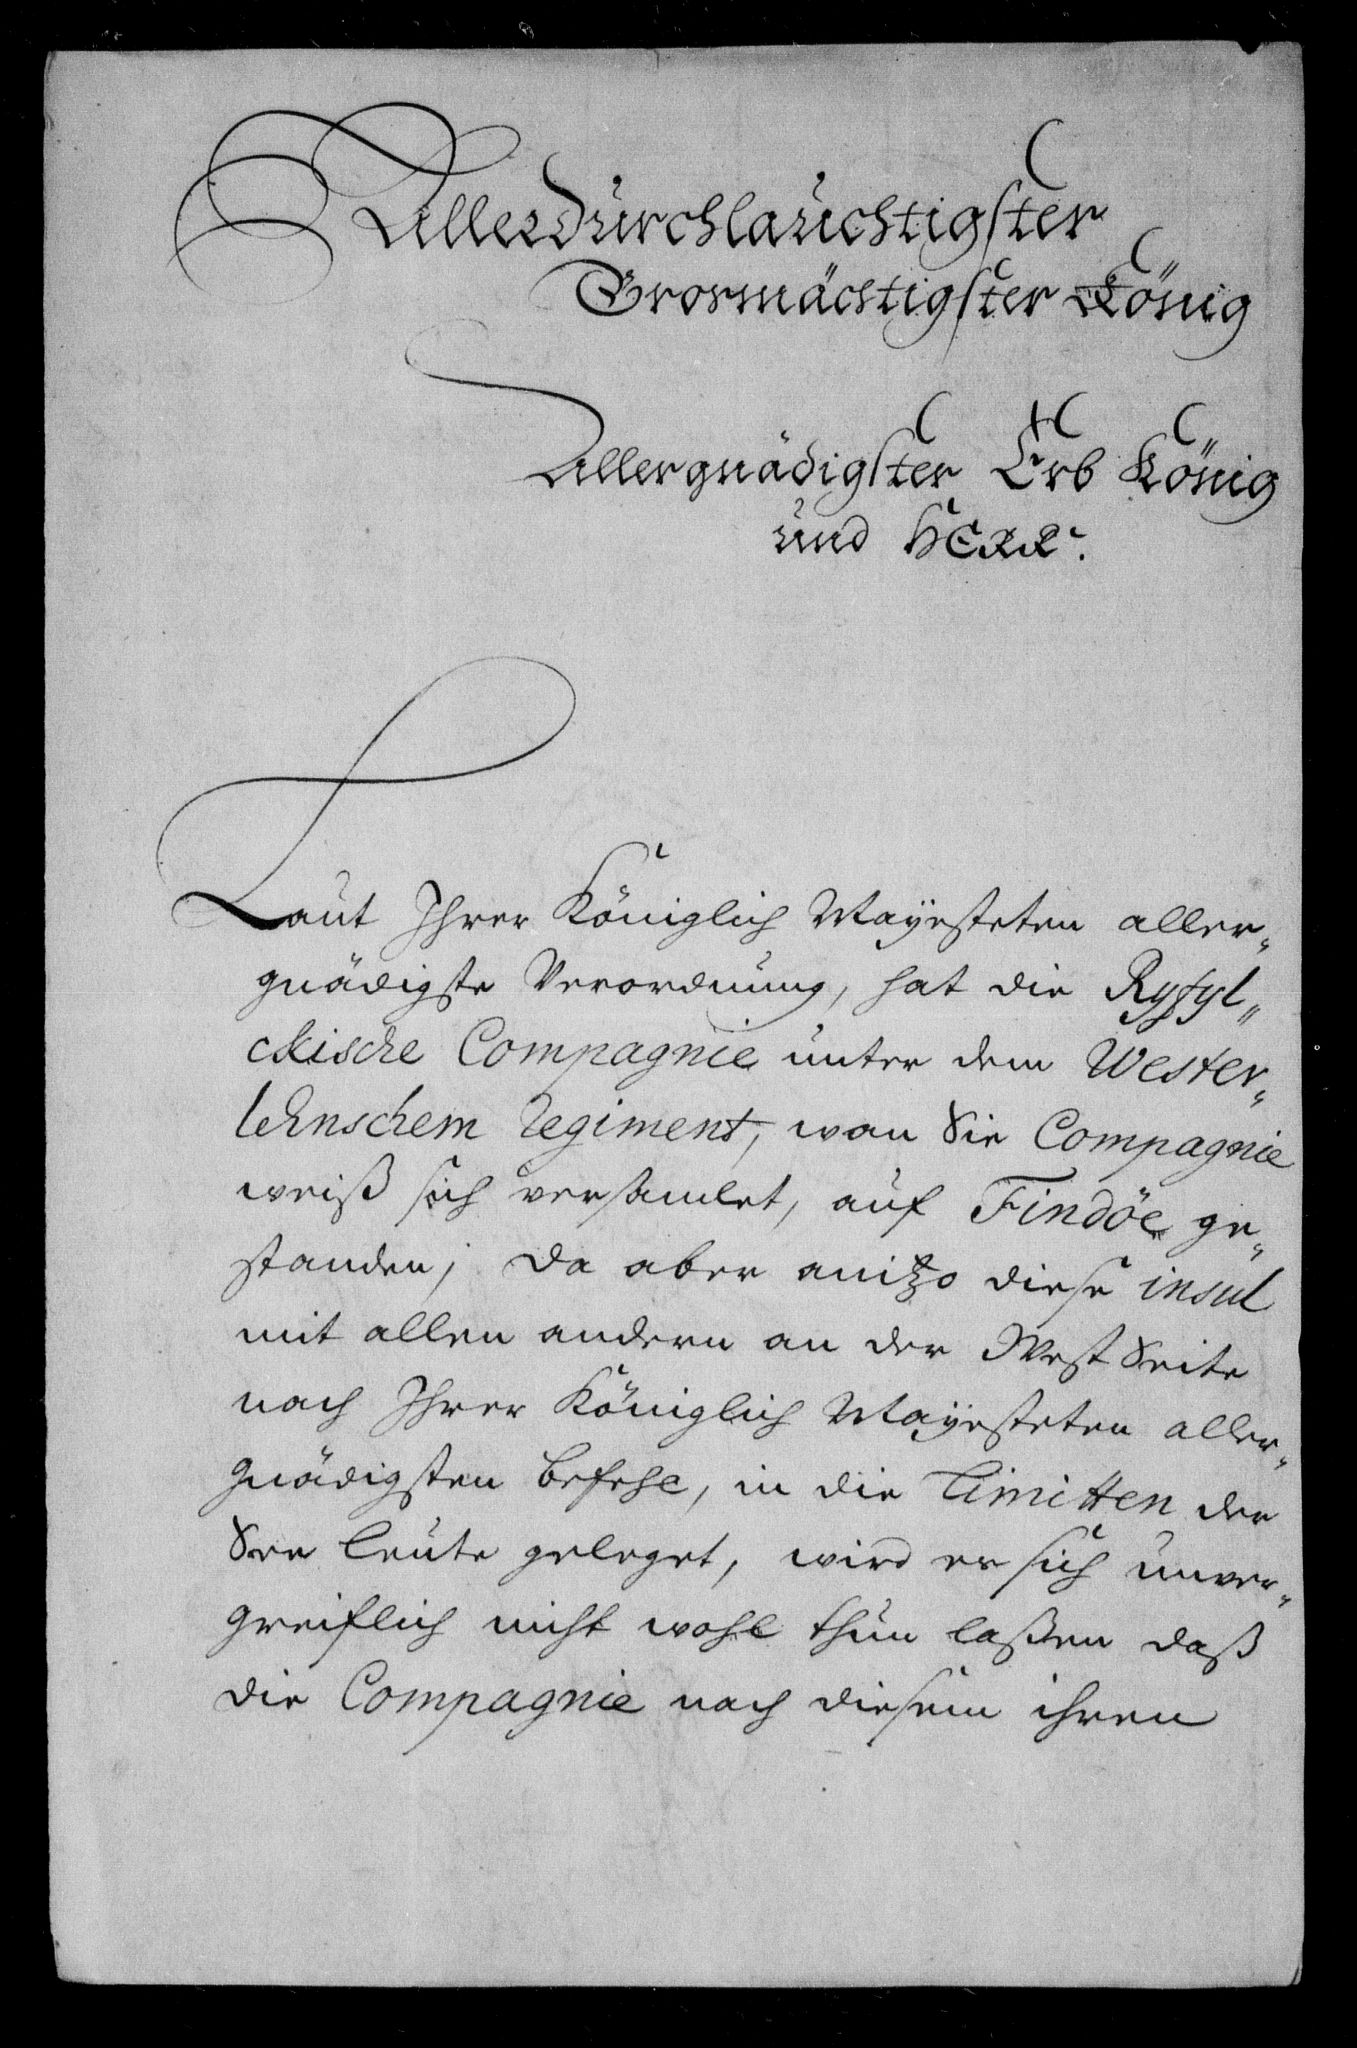 Allerdürchlaüchtigster
Grosmächtigster König
Allergnädigster Erb König
und HERR.
Laut Ihrer Königlich Mayesteten aller„
gnädigste Verordnung, hat die Ryfyl„
ckische Compagnie unter dem Wester„
lehnschem Regiment, wan Sie Compagnie
weiß sich versamlet, auf Findöe ge„
standen; Da aber anitzo diese insul
mit allen andern an der West Seite
nach Ihrer Königlich Mayesteten aller„
gnädigsten befehl, in die Limitten der
See leute geleget, wird er sich unver„
greiflich nicht wohl thun laßen daß
die Compagnie nach diesem ihren